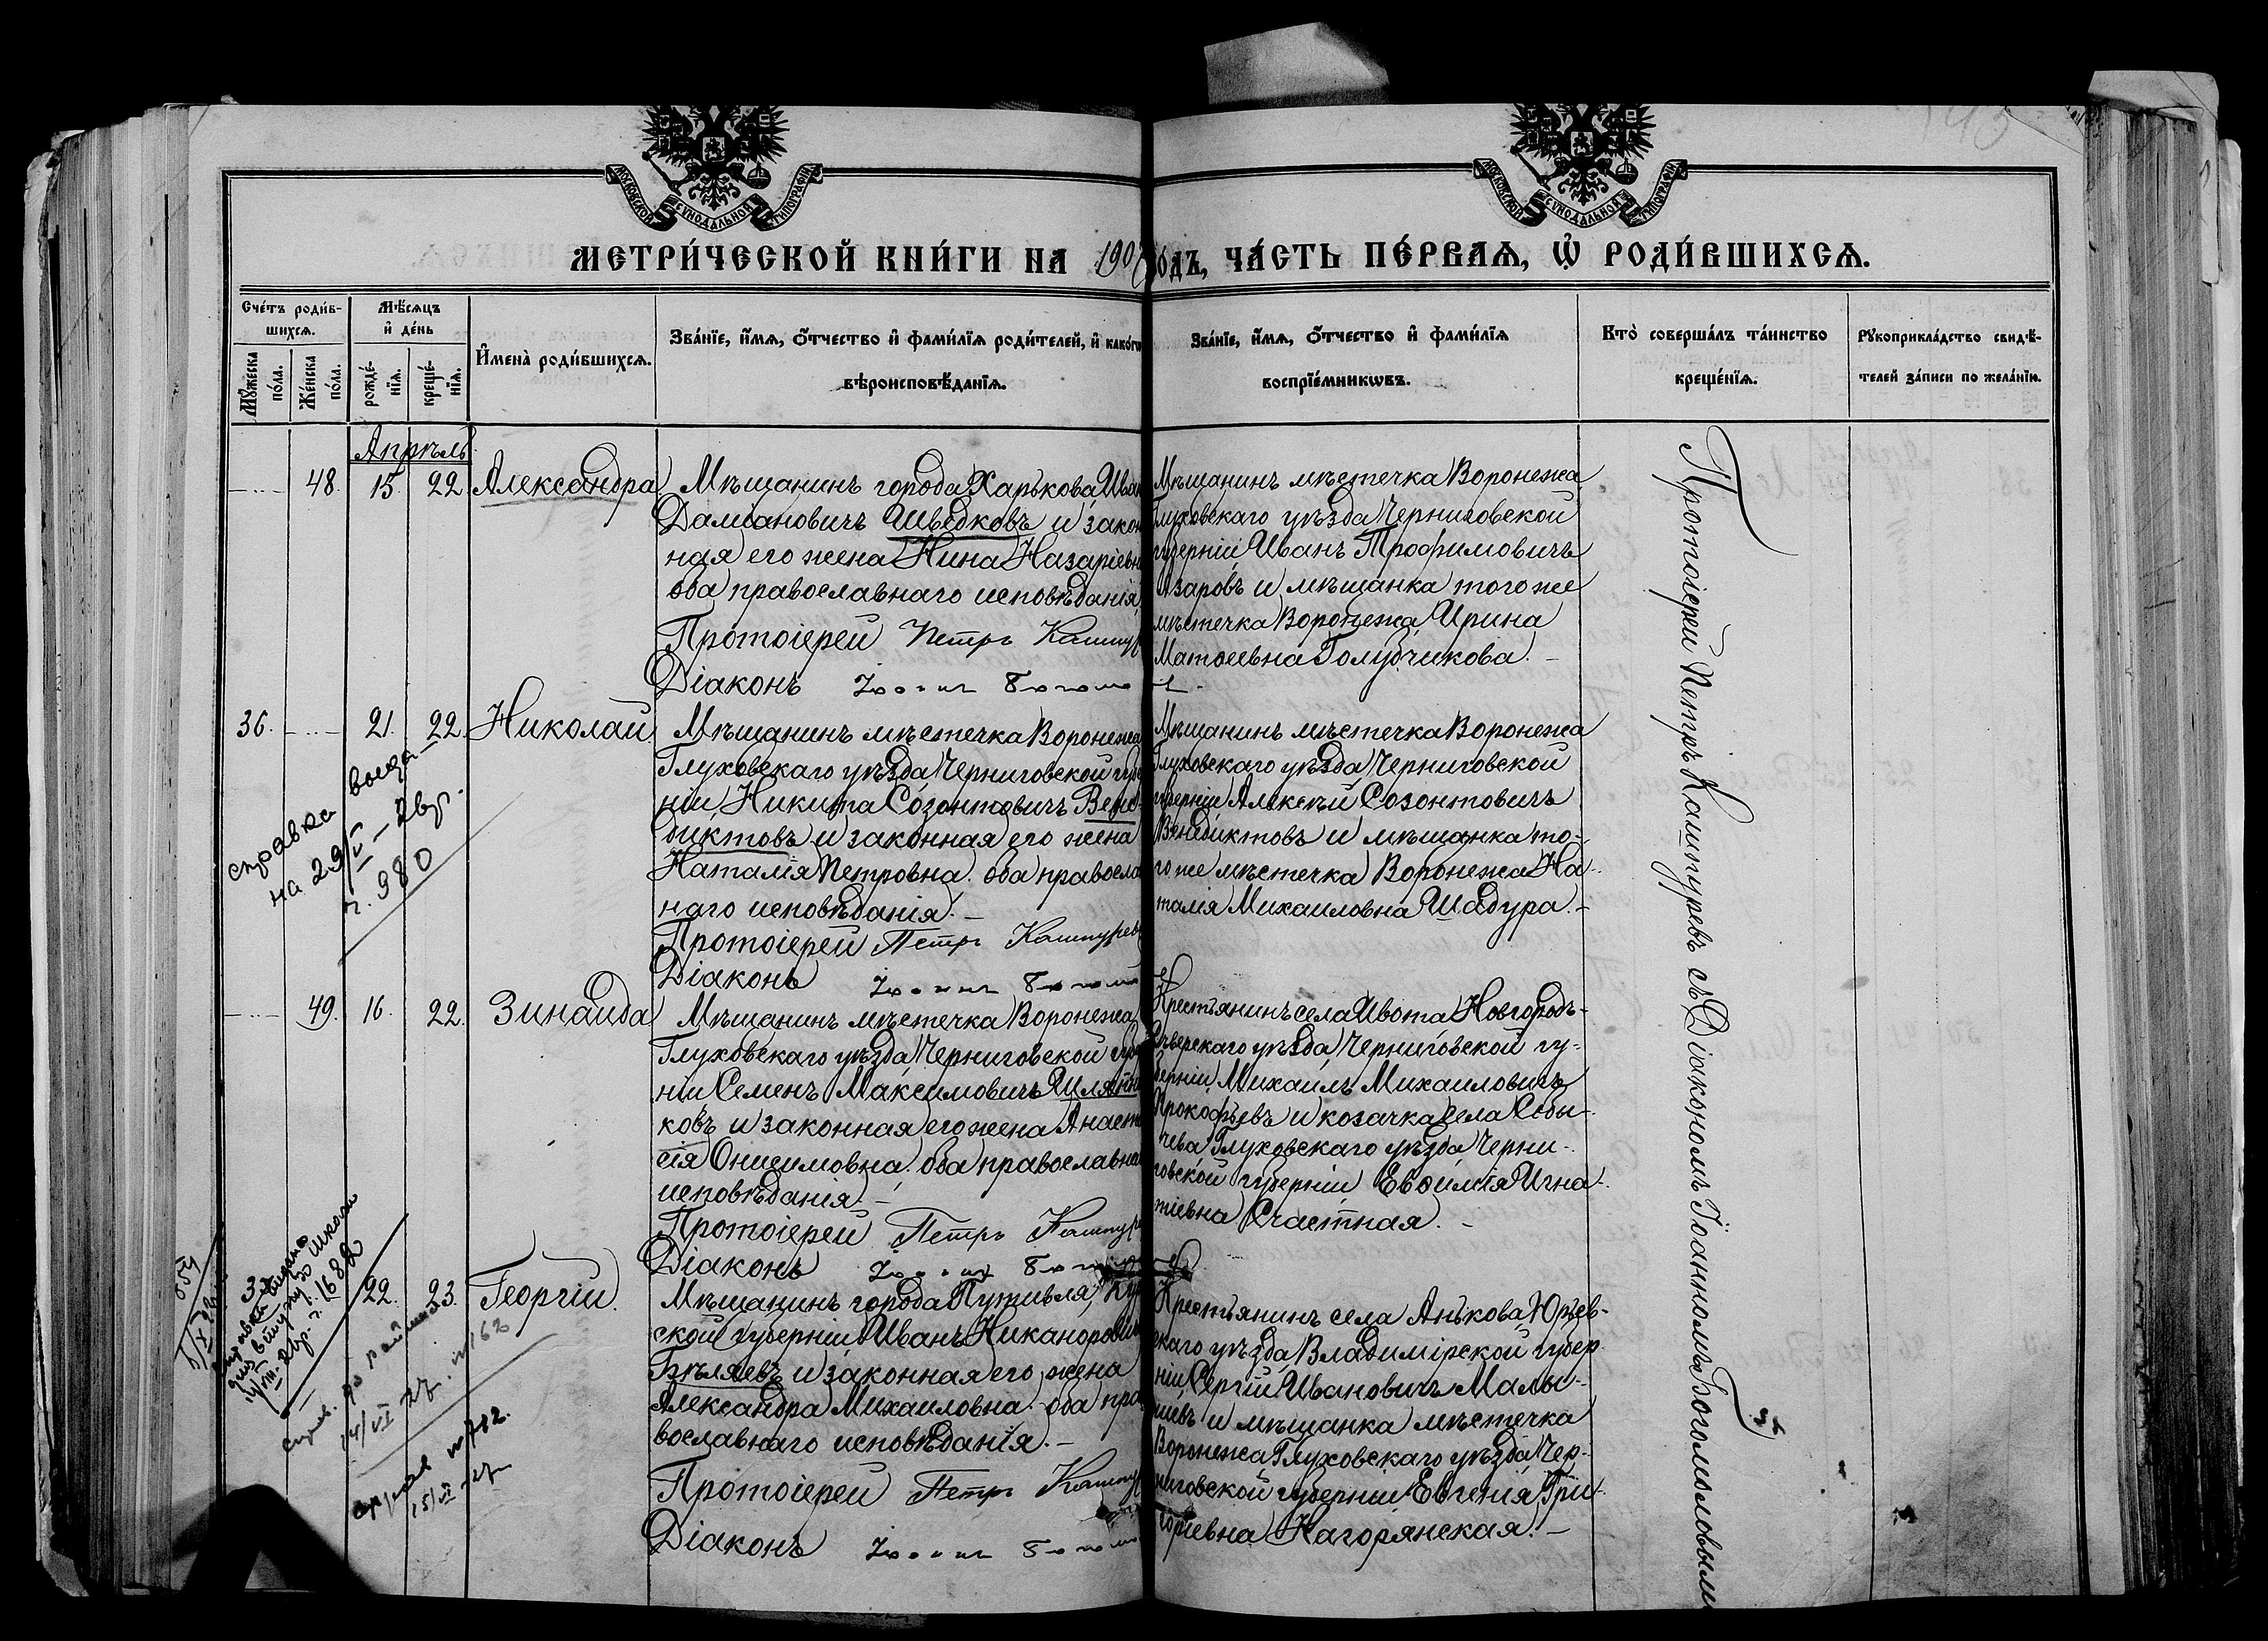 МОСКОВСКОЙ СѴНОДАЛЬНОЙ ТИПОГРАФІИ
МОСКОВСКОЙ СѴНОДАЛЬНОЙ ТИПОГРАФІИ
МЕТРИ́ЧЕСКОЙ КНИ́ГИ НА 190 го́дъ, ЧА́СТЬ ПЕ́РВАѦ, Ѽ РОДИ́ВШИХСѦ.
Сче́тъ роди́в-
шихсѧ.
Мꙋ́жеска по́ла.
Же́нска по́ла.
Мѣ́сѧцъ
и҆ де́нь
рожде́-
нїѧ.
креще́-
нїѧ.
И҆мена̀ роди́вшихсѧ.
Зва́нїе, и҆́мѧ, ѻ҆́тчество и҆ фами́лїѧ роди́телей, и҆ како́гѡ
вѣроисповѣ́данїѧ.
Зва́нїе, и҆́мѧ, ѻ҆́тчество и҆ фами́лїѧ
воспрїе́мникѡвъ.
Кто̀ соверша́лъ та́инство
креще́нїѧ.
Рꙋкоприкла́дство свидѣ́-
телей за́писи по жела́нїю.
Апрѣль
48. 15. 22. Александра
Мѣщанинъ города Харькова Иван
Даміановичъ Шведковъ и закон
ная его жена Нина Назаріевн
оба православнаго исповѣданія.
Протоіерей Петръ Кашпур
Діаконъ
Мѣщанинъ мѣстечка Воронежа
Глуховскаго уѣзда Черниговской
губерніи Иванъ Трофимовичъ
Азаровъ и мѣщанка того же
мѣстечка Воронежа Ирина
Матѳеевна Голубчикова. –
36. 21. 22. Николай
Мѣщанинъ мѣстечка Воронежа
Глуховскаго уѣзда Черниговской губе
ніи Никита Созонтовичъ Вене-
диктовъ и законная его жена
Наталія Петровна. оба правосла
наго исповѣданія. –
Протоіерей Петръ Кашпурев
Діаконъ
Мѣщанинъ мѣстечка Воронежа
Глуховскаго уѣзда Черниговской
губерніи Алексѣй Созонтовичъ
Венедиктовъ и мѣщанка то-
го же мѣстечка Воронежа На-
талія Михаиловна Шадура. –
справка
на 29/V – 2
г. 980
49. 16. 22. Зинаида
Мѣщанинъ мѣстечка Воронежа
Глуховскаго уѣзда Черниговской губе
ніи Семенъ Максимовичъ Шлято
ковъ и законная его жена Анаста
сія Онисимовна, оба православна
исповѣданія. –
Протоіерей Петръ Кашпуре
Діаконъ
Крестьянинъ села Ивота Новгородъ-
Сѣверскаго уѣзда Черниговской гу-
берніи Михаилъ Михаиловичъ
Прокофьевъ и козачка села Собы-
чева Глуховскаго уѣзда Черни-
говской губерніи Евѳимія Игна-
тіевна Счастная. –
22. 23. Георгій.
Мѣщанинъ города Путивля, Кур
ской губерніи Иванъ Никаноровичъ
Бѣляевъ и законная его жена
Александра Михаиловна. оба пра
вославнаго исповѣданія. –
Протоіерей Петръ Кашпур
Діаконъ
Крестьянинъ села Анькова Юрьев-
скаго уѣзда Владимірской губер
ніи Сергій Ивановичъ Малы-
шевъ и мѣщанка мѣстечка
Воронежа Глуховскаго уѣзда Чер-
ниговской губерніи Евгенія Гри-
горіевна Нагорянская. –
Протоіерей Петръ Кашпуревъ съ Діакономъ Іоанномъ Богомоловым